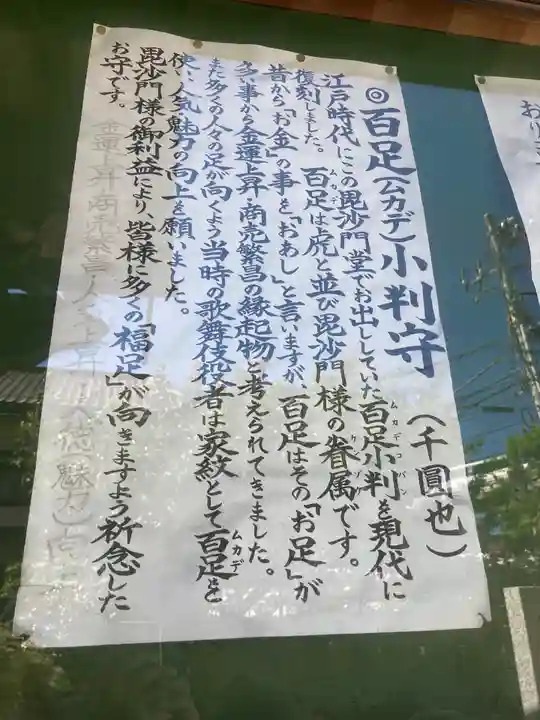 ◎百足(ムカデ)小判守
(千圓也)
江戸時代にこの毘沙門堂でお出ししていた百足小判を現代に
ムカデコバン
復刻しました。百足は虎と並び毘沙門様の眷属です。
ムカデ
ケンゾク
昔から「お金」の事を「おあし」と言いますが、百足はその「お足」が
多い事から金運上昇・商売繁昌の縁起物と考えられてきました。
また多くの人々の足が向くよう当時の歌舞伎役者は家紋として百足を
ムカデ
使い人気・魅力の向上を願いました。
毘沙門様の御利益により、皆様に多くの「福足」が向きますよう祈念した
お守です。
金運上昇・商売繁昌・人気上昇
おり